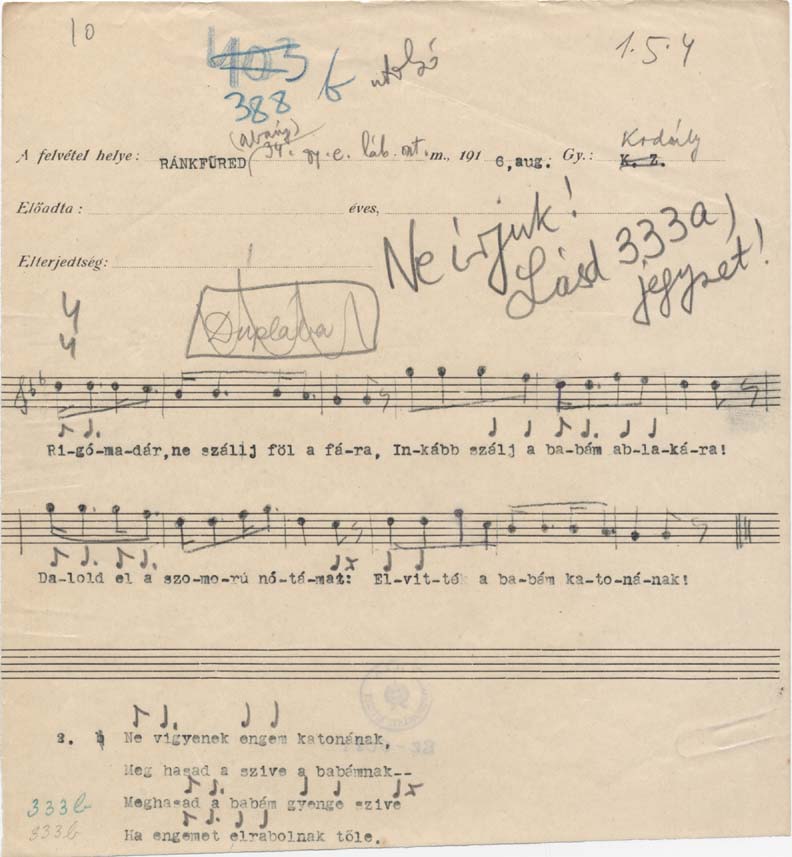 10
403
388 b utolsó
1.5.4
(abauj)
A felvétel helye: RÁNKFÜRED 34. gy. e. láb. m., 191 6, aug. Gy.: K. Z. Kodály
Előadta: éves,
Elterjedtség:
Ne írjuk!
Lásd 333a)
jegyzet!
4
4
Duplába
Ri-gó-ma-dár,ne szállj föl a fá-ra, In-kább szálj a ba-bám ab-la-ká-ra!
Da-lold el a szo-mo-rú nó-tá-mat: El-vit-ték a ba-bám ka-to-ná-nak!
2. Ne vigyenek engem katonának,
Meg hasad a szive a babámnak--
Meghasad a babám gyenge szive
Ha engemet elrabolnak tőle.
333b
333b